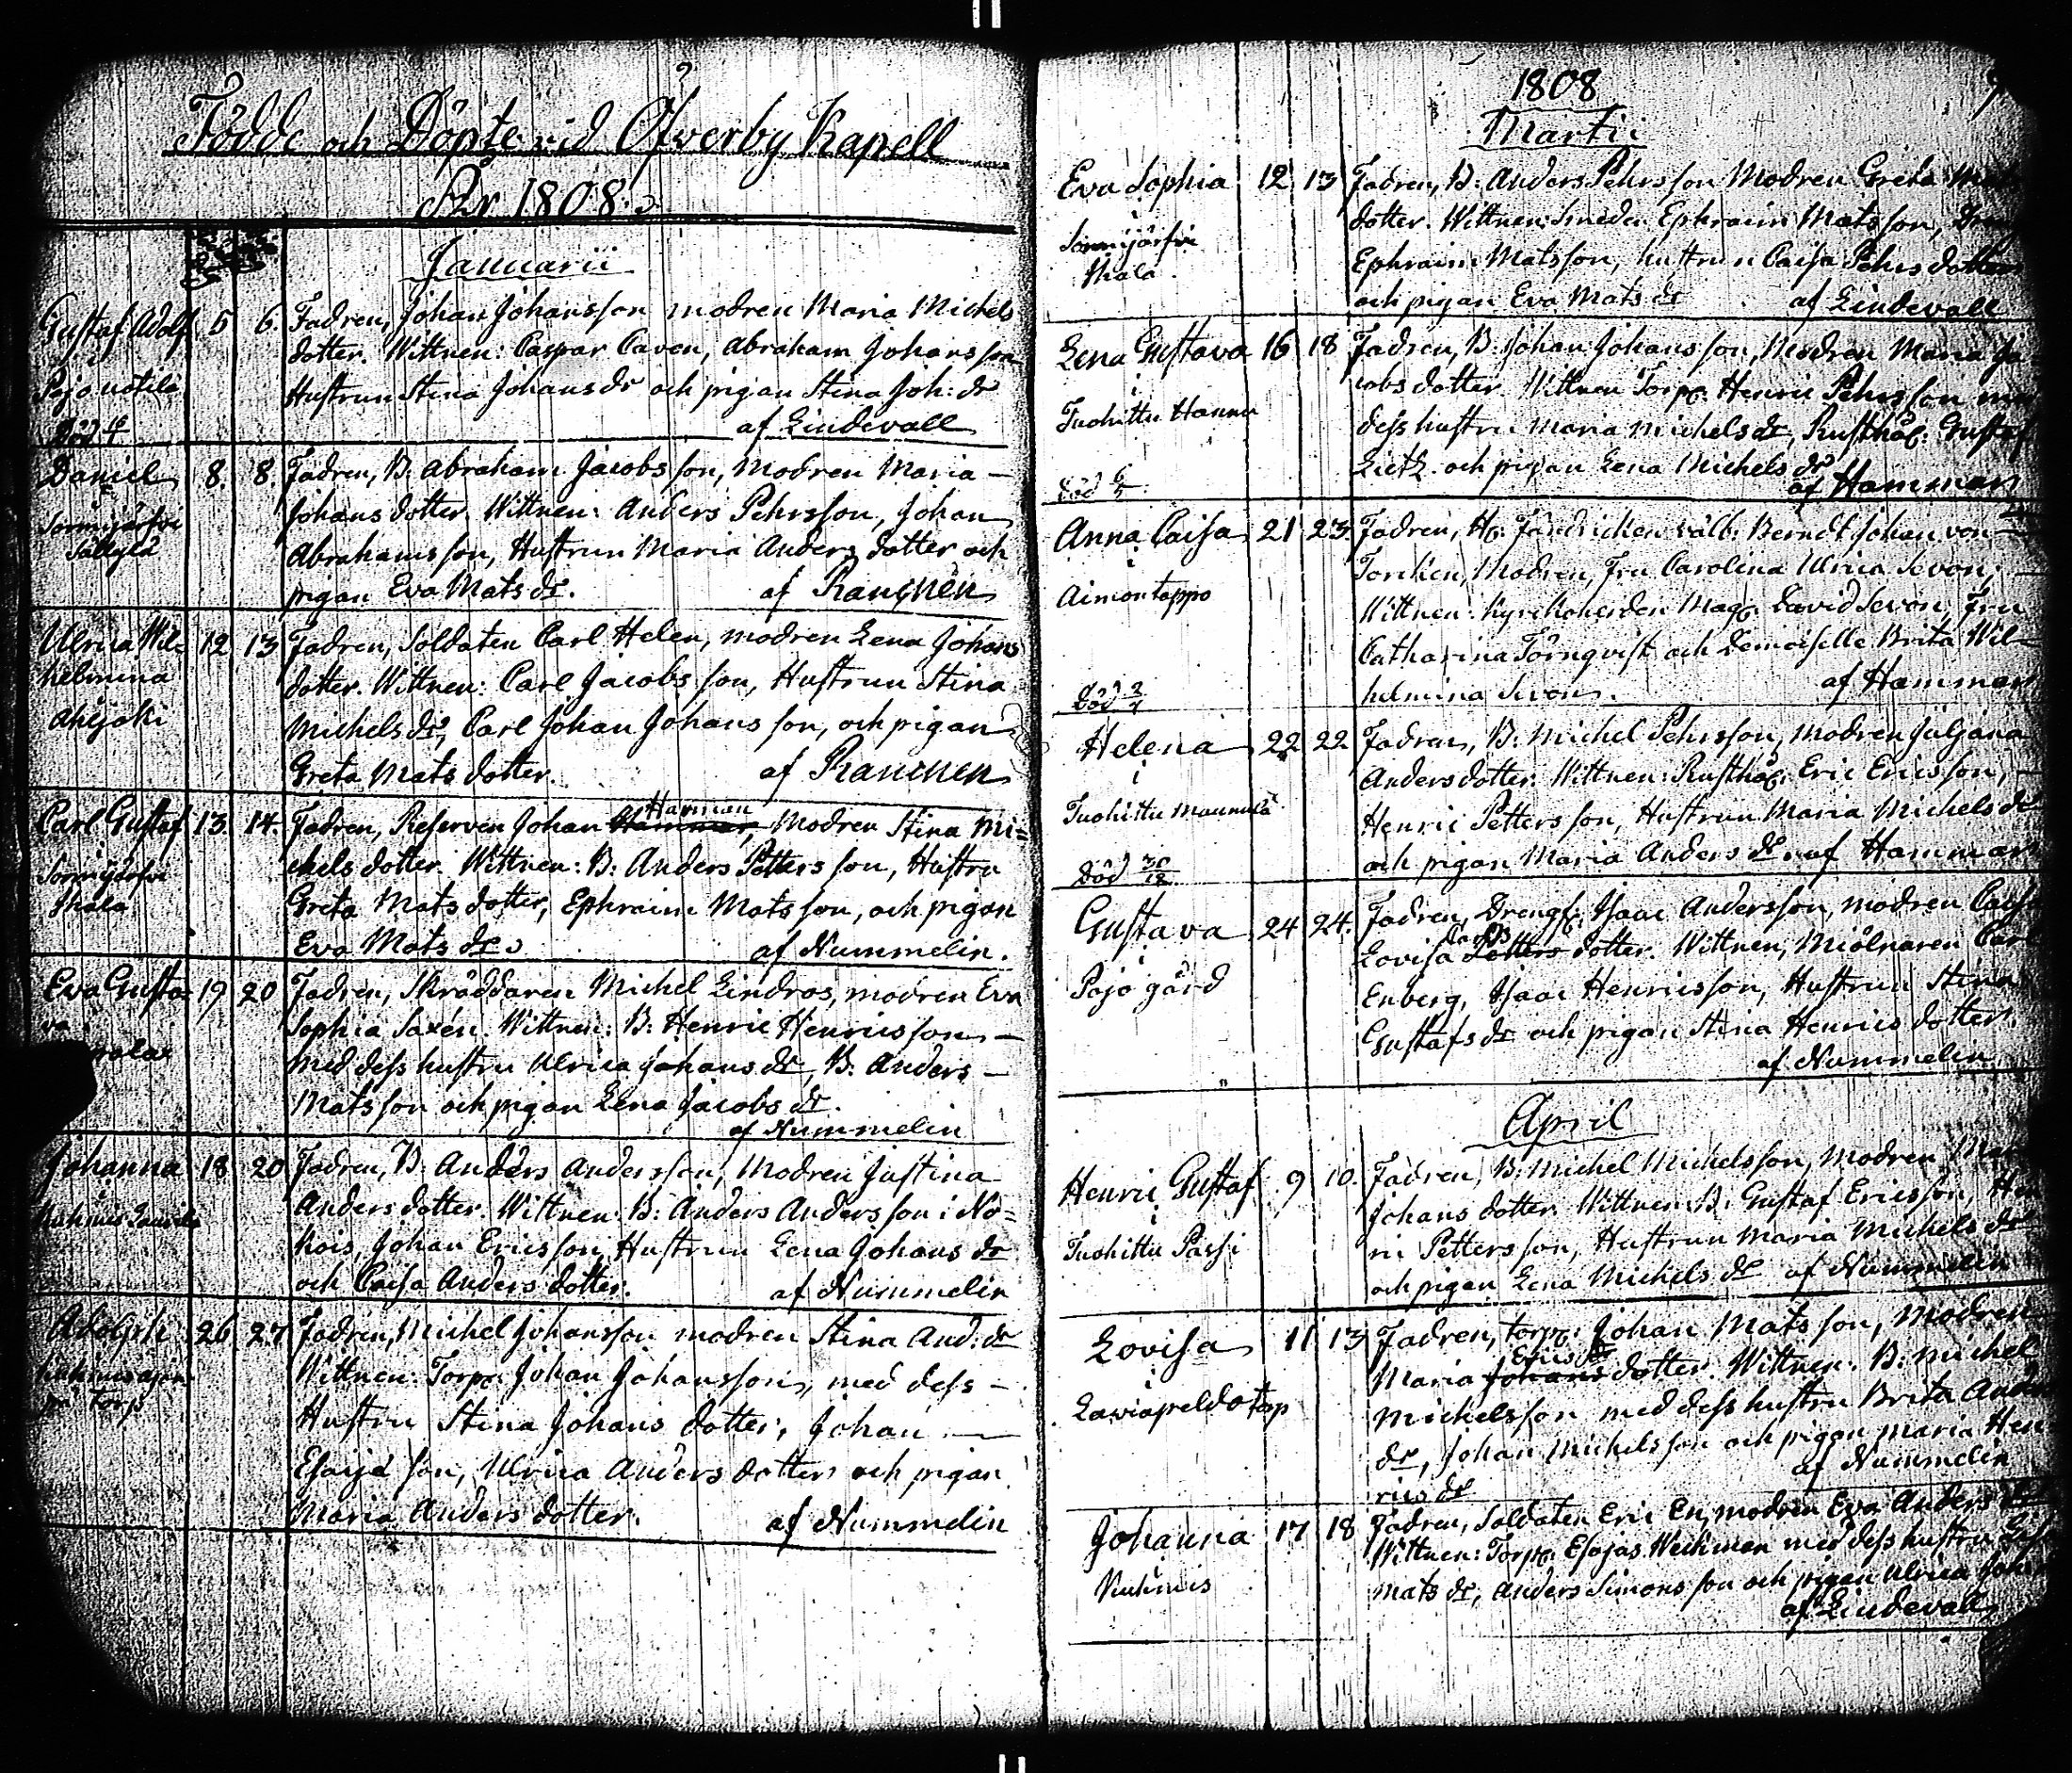 Födde och Döpte vid Öfverby Kapell
År 1808.
Januarii
Gustaf Adolf 5 6. Fadren, Johan Johansson modren Maria Michels
i
Pojo uotila
dotter. Wittnen: Caspar Caven, Abraham Johansson
Hustrun Stina Johans dr och pigan Stina Joh: dr
Död
af Lindevall
Daniel 8. 8. Fadren, B. Abraham Jacobsson, Modren Maria
i
Johans dotter. Wittnen: Anders Pehrsson, Johan
Abrahamsson, Hustrun Maria Anders dotter och
pigan Eva Mats dr. af Rancken
Ulrica Wil= 12 13 Fadren, Soldaten Carl Helen, modren Lena Johans
helmina
dotter. Wittnen: Carl Jacobsson, Hustrun Stina
Ahljoki
Michels dr, Carl Johan Johansson, och pigan
Greta Mats dotter. af Rancken
Carl Gustaf 13. 14. Fadren, Reserven Johan Hammar, Harman Modren Stina Mi=
i
chels dotter. Wittnen: B: Anders Petters son, Hustru
Greta Mats dotter, Ephraim Matsson, och pigan
Eva Mats dr af Nummelin.
Eva Gusta= 19 20 Fadren, Skräddaren Michel Lindros, modren Eva
va
Sophia Saxén. Wittnen: B: Henric Henricsson
med dess hustru Ulrica Johans dr, B: Anders
Matsson och pigan Lena Jacobs dr.
af Nummelin
Johanna 18 20 Fadren, B: Anders Andersson, Modren Justina
Anders dotter. Wittnen: B: Anders Andersson i No=
kois, Johan Ericsson, Hustrun Lena Johans dr
och Caisa Anders dotter. af Nummelin
Adolph 26 27 Fadren, Michel Johansson modren Stina And: dr
Wittnen: Torp: Johan Johansson, med dess
torp
Hustru Stina Johans dotter, Johan
Esaijæ son, Ulrica Anders dotter och pigan
Maria Anders dotter. af Nummelin
1808
Martii
Eva Sophia 12 13 Fadren, B: Anders Pehrsson Modren Greta
i
dotter. Wittnen: Smeden Ephraim Matsson,
Ephraim Matsson, hustrun Caisa Pehrs dotter
och pigan Eva Mats dr af Lindevall
Lena Gustava 16 18 Fadren, B: Johan Johansson, Modren Maria Ja=
i
cobs dotter. Wittnen Torp: Henric Pehrsson
Tuohittu Hannu
dess hustru Maria Michels dr, Rusthåll: Gustaf
Lietz. och pigan Lena Michels dr
Död
af Hammar
Anna Caisa 21 23. Fadren, H: Fändricken välb: Berndt Johan von
i
Torcken, Modren, Fru Carolina Ulrica Sevon,
Aimontappo
Wittnen: Kyrckoherden Mag: David Sevon, Fru
Catharina Törnqvist och Demoiselle Brita Wil=
Död
helmina Sevon. af Hammar
Helena 22 22 Fadren, B: Michel Pehrsson, modren Juljana
i
Anders dotter. Wittnen: Rusthåll: Eric Ericsson,
Tuohittu Mannula
Henric Pettersson, Hustrun Maria Michels dr
Död 30/12
och pigan Maria Anders dr af Hammar
Gustava 24 24. Fadren, Dreng: Isaac Andersson, modren Caisa
i
Lovisa dotter. Wittnen, Miölnaren Carl
Pojo gård
Enberg, Isaac Henricsson, Hustrun Stina
Gustafs dr och pigan Stina Henrics dotter.
af Nummelin
April
Henric Gustaf 9 10. Fadren, B: Michel Michelsson, Modren
i
Johans dotter Wittnen: B: Gustaf Ericsson, Hen
Tuohittu Passi
ric Pettersson, Hustrun Maria Michels dr
och pigan Lena Michels dr af Nummelin
Lovisa 11 13 Fadren, torp: Johan Matsson, Modren
i
Maria Johans Erics dr dotter. Wittnen: B: Michel
Michelsson med dess hustru Brita Anders
dr, Johan Michelsson och pigan Maria Hen
rics dr af Nummelin
Johanna 17 18 Fadren, Soldaten Eric En, modren Eva Anders dr
Wittnen: Torp: Esajas Weckman med dess hustru
Mats dr, Anders Simonsson och pigan Ulrica
af Lindevall